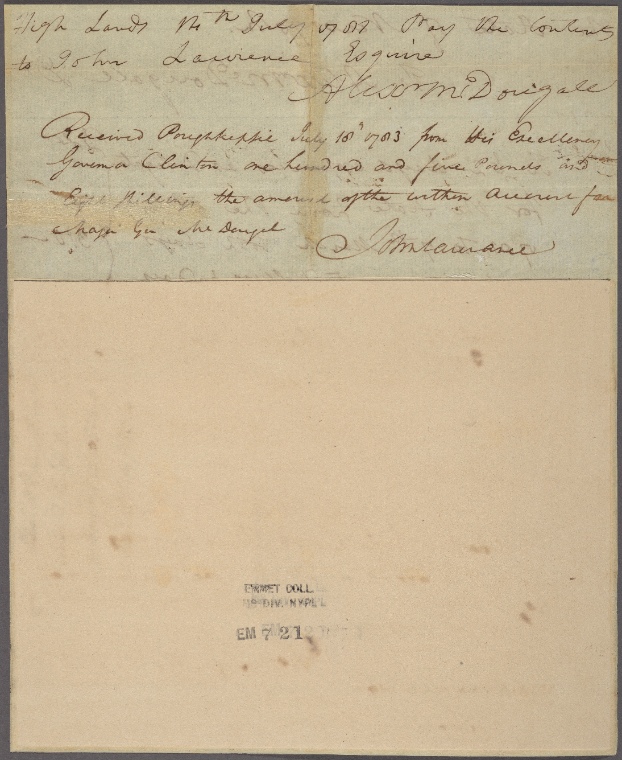 High Lands July 1782 Pay the Contents
to John Lawrence Esquire
Alexr McDougall
Received Poughkepsie July 18th 1783 from His Excellency
Governor Clinton one hundred and five Pounds and
Eight Shillings the amount of the within Account for
Major Gen McDougel
John Laurance
EMMET COLL.
MS DIV. NYPL
EM 721